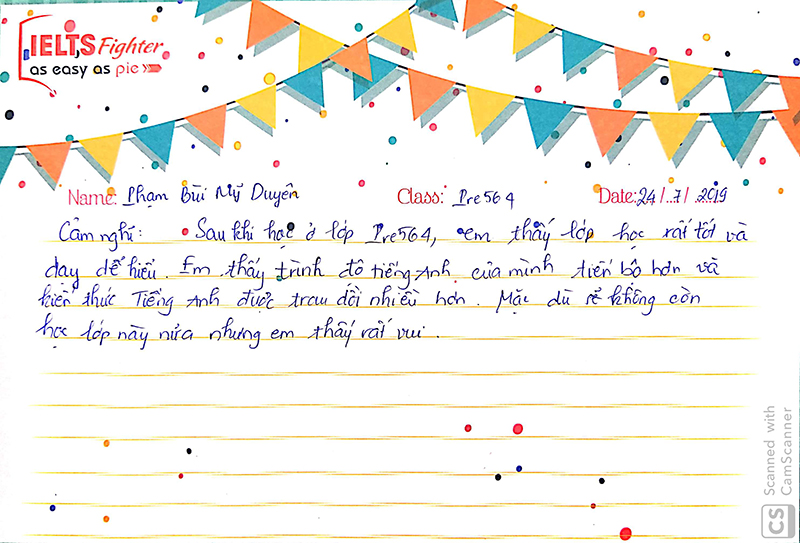 IELTS Fighter
as easy as pie
Name: Phạm Bùi Mỹ Duyên Class: Pre564 Date: 24/7/2019
Cảm nghĩ: Sau khi học ở lớp Pre564, em thấy lớp học rất tốt và
dạy dễ hiểu. Em thấy trình độ tiếng Anh của mình tiến bộ hơn và
kiến thức Tiếng Anh được trau dồi nhiều hơn. Mặc dù sẽ không còn
học lớp này nữa nhưng em thấy rất vui.
Scanned with
CamScanner
CS